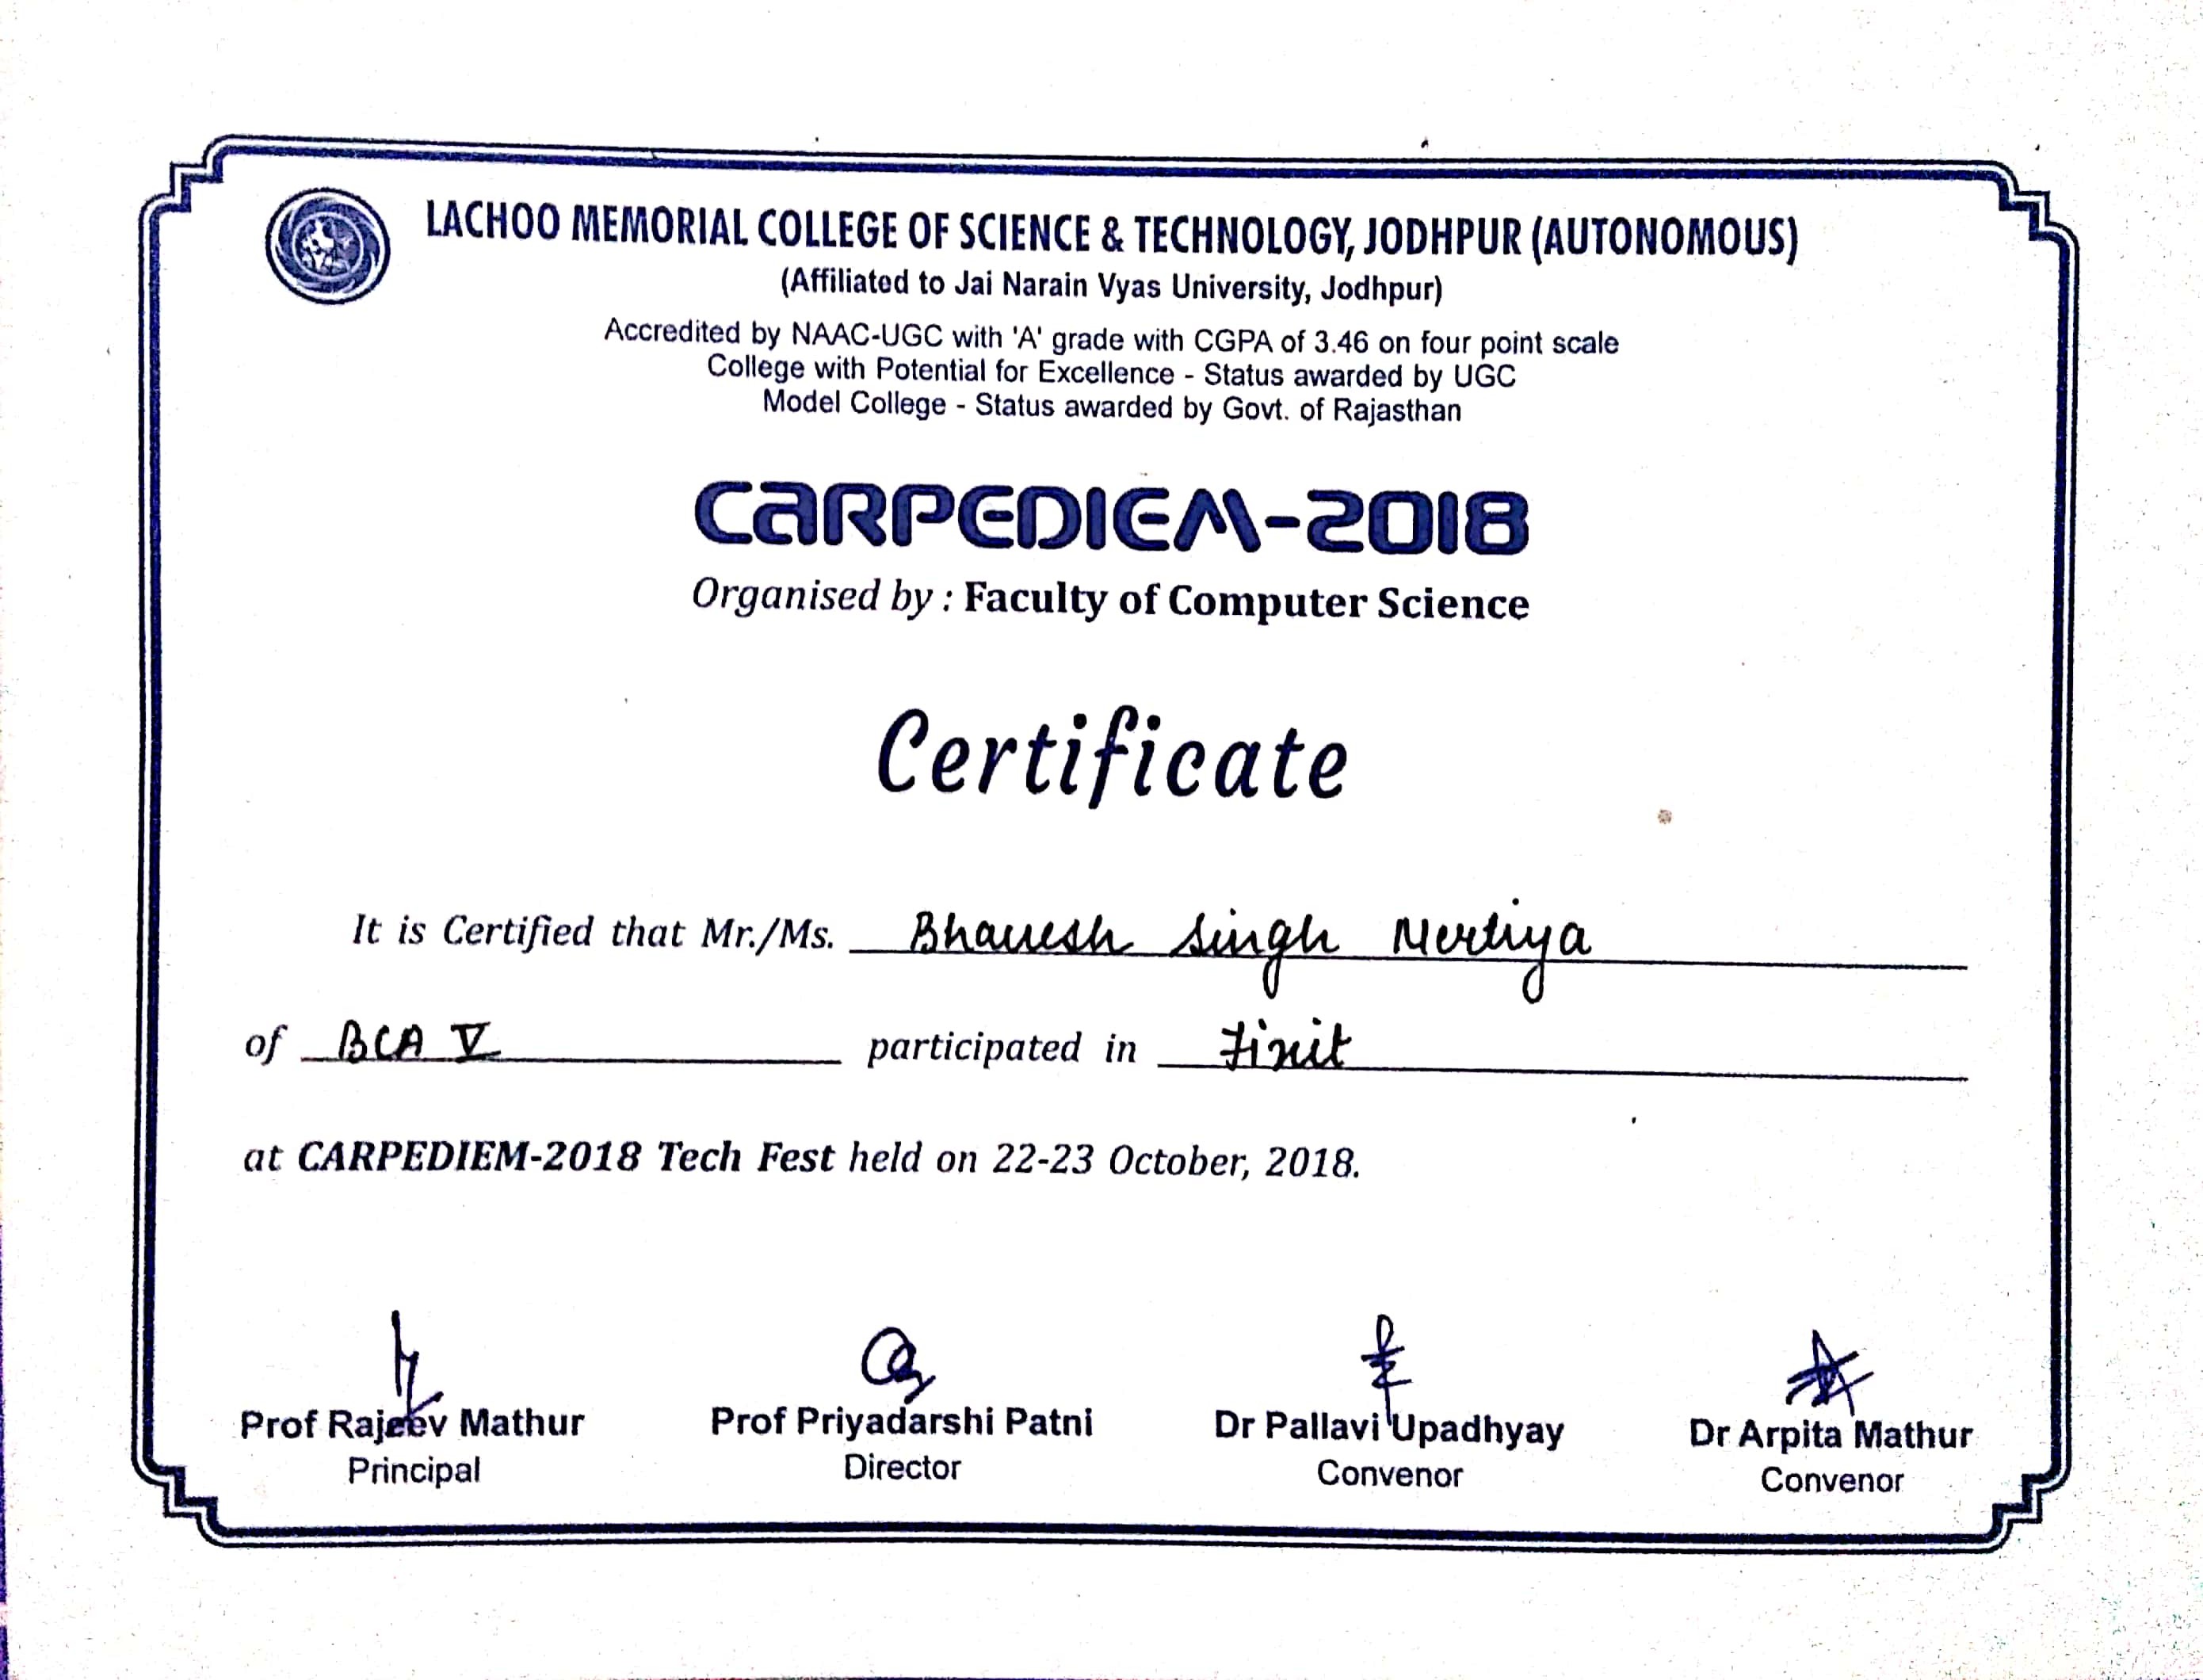 LACHOO MEMORIAL COLLEGE OF SCIENCE & TECHNOLOGY, JODHPUR (AUTONOMOUS)
(Affiliated to Jai Narain Vyas University, Jodhpur)
Accredited by NAAC-UGC with 'A' grade with CGPA of 3.46 on four point scale
College with Potential for Excellence - Status awarded by UGC
Model College - Status awarded by Govt. of Rajasthan
CARPEDIEM-2018
Organised by : Faculty of Computer Science
Certificate
It is Certified that Mr./Ms. Bhavesh Singh Mertiya
of BCA V participated in Fixit
at CARPEDIEM-2018 Tech Fest held on 22-23 October, 2018.
Prof Rajeev Mathur Prof Priyadarshi Patni Dr Pallavi Upadhyay Dr Arpita Mathur
Principal Director Convenor Convenor